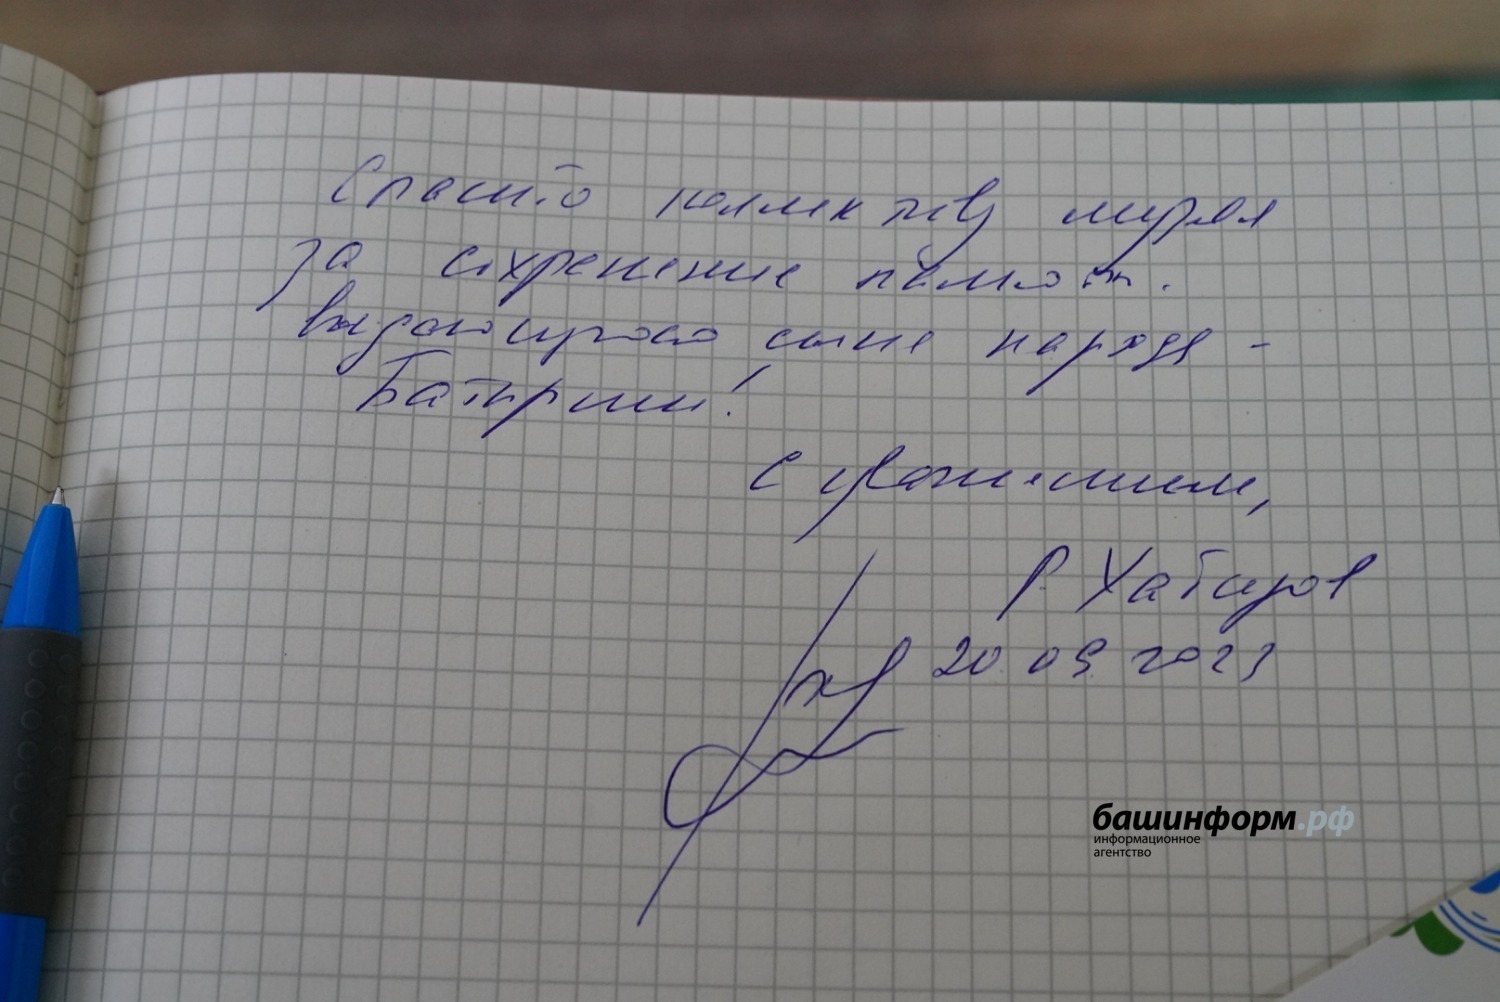 Спасибо коллективу музея
за сохранение памяти
выдающегося сына народа -
Батырши!
С уважением,
Р. Хабиров
20.09.2023
башинформ.рф
информационное
агентство